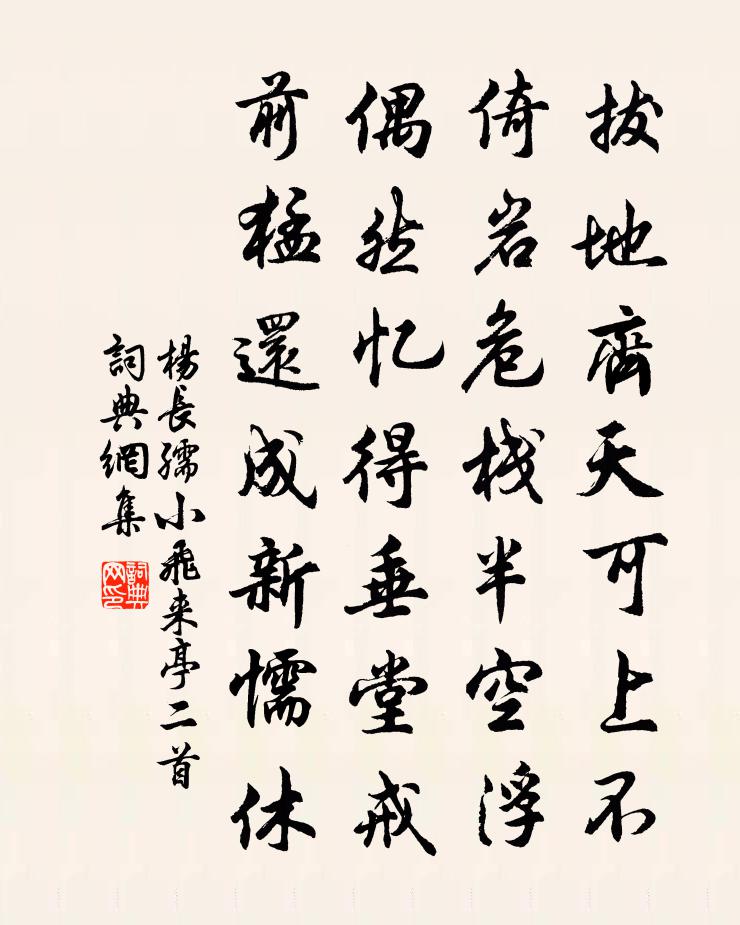 拔地齊天可上不
倚岩危栈半空浮
偶然忆得垂堂戒
前猛還成新懦休
楊長孺小飛来亭二首
詞典網集
詞典网印